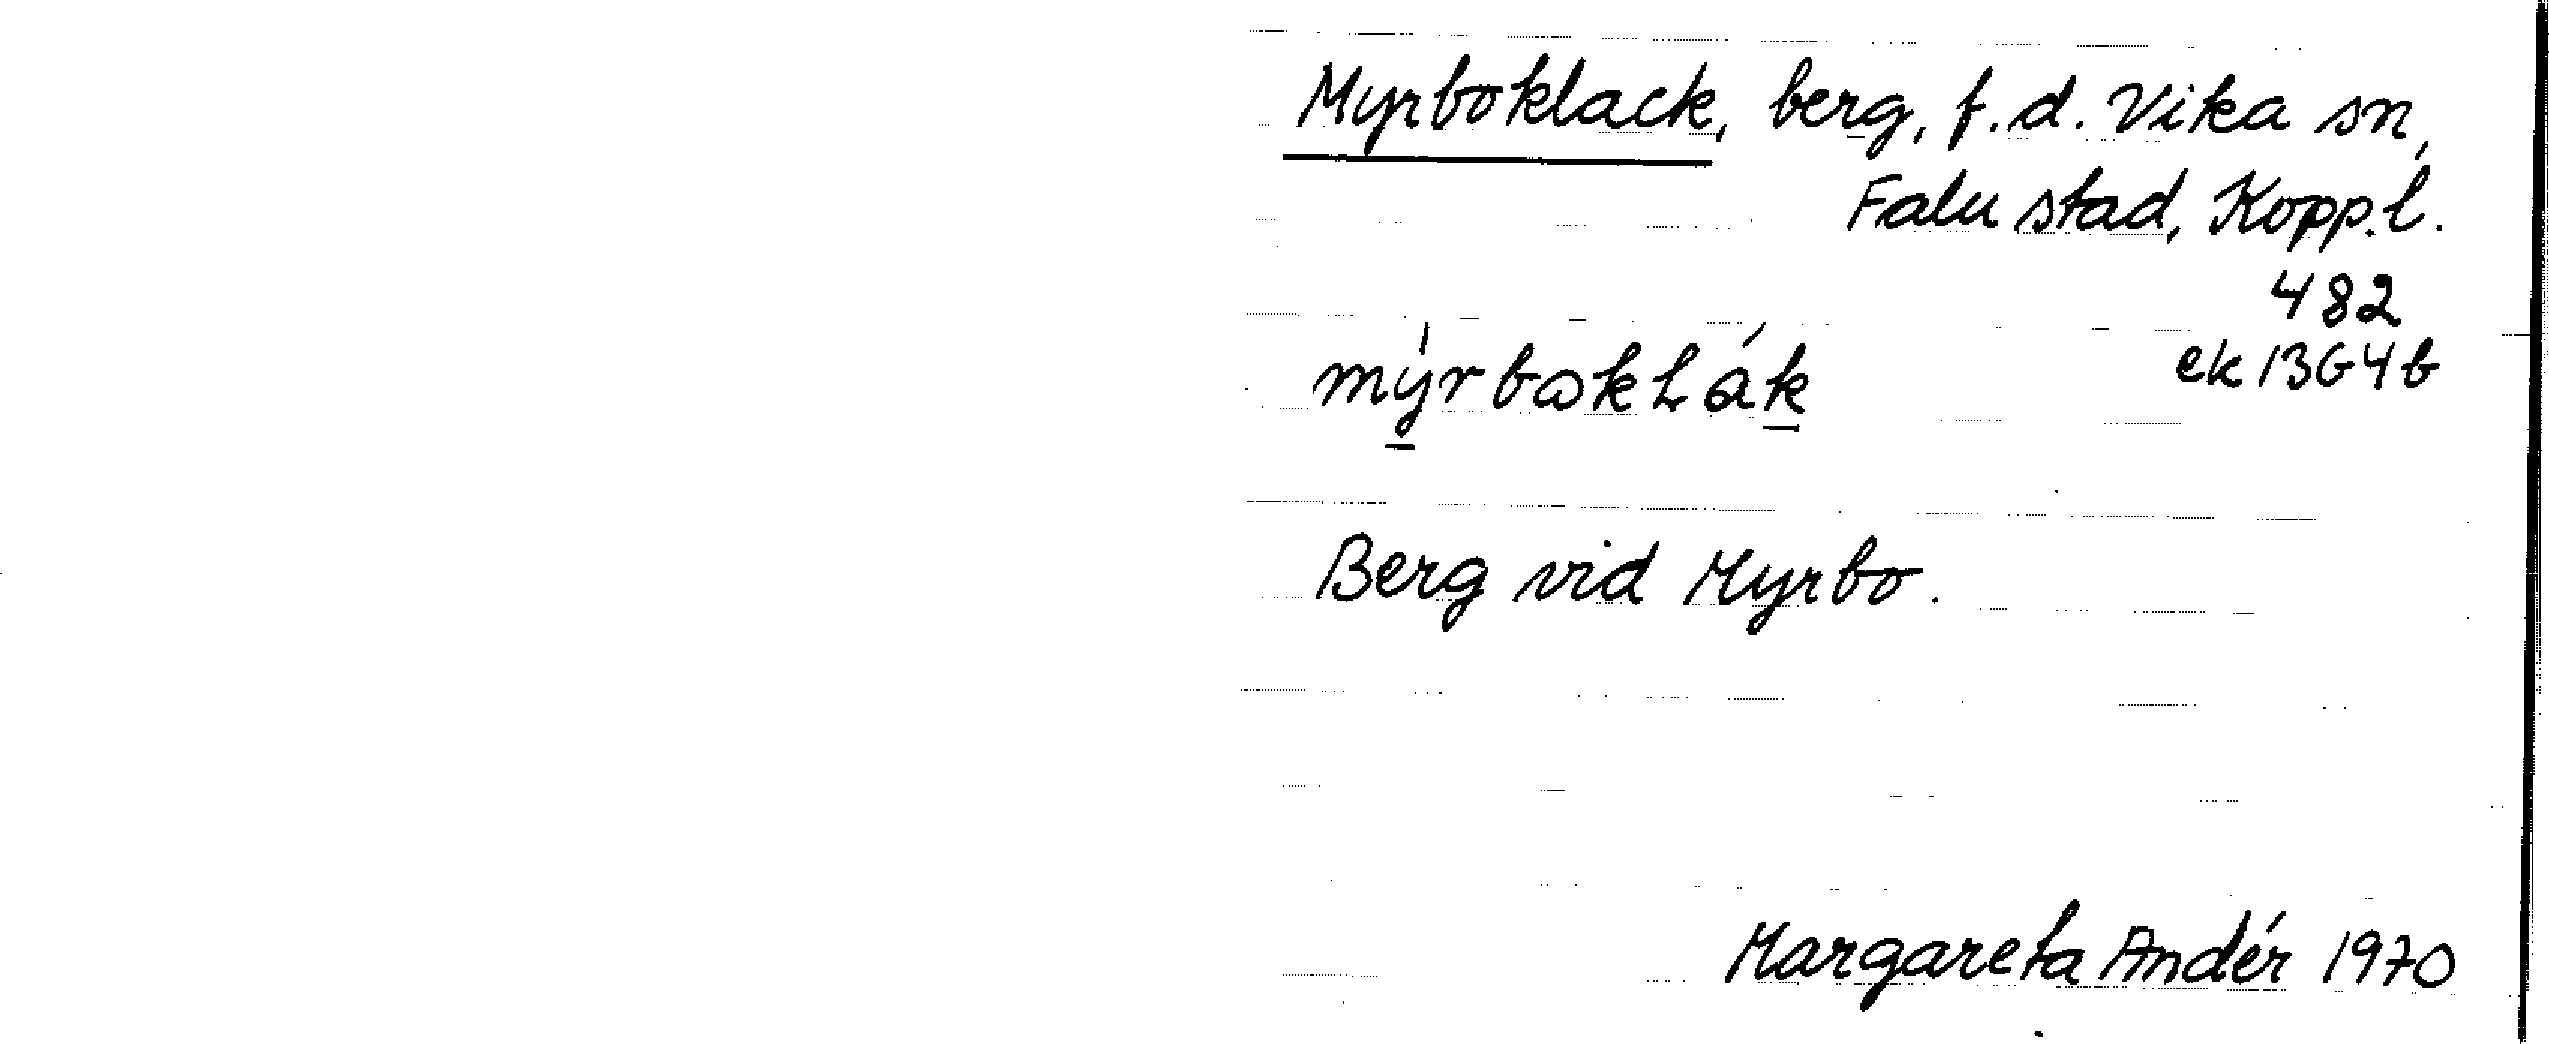 Myrboklack, berg, f.d. Vika sn,
Falu stad, Kopp.l.
482
ek 13G4b
mýrbωkʟák
Berg vid Myrbo.
Margareta Andér 1970